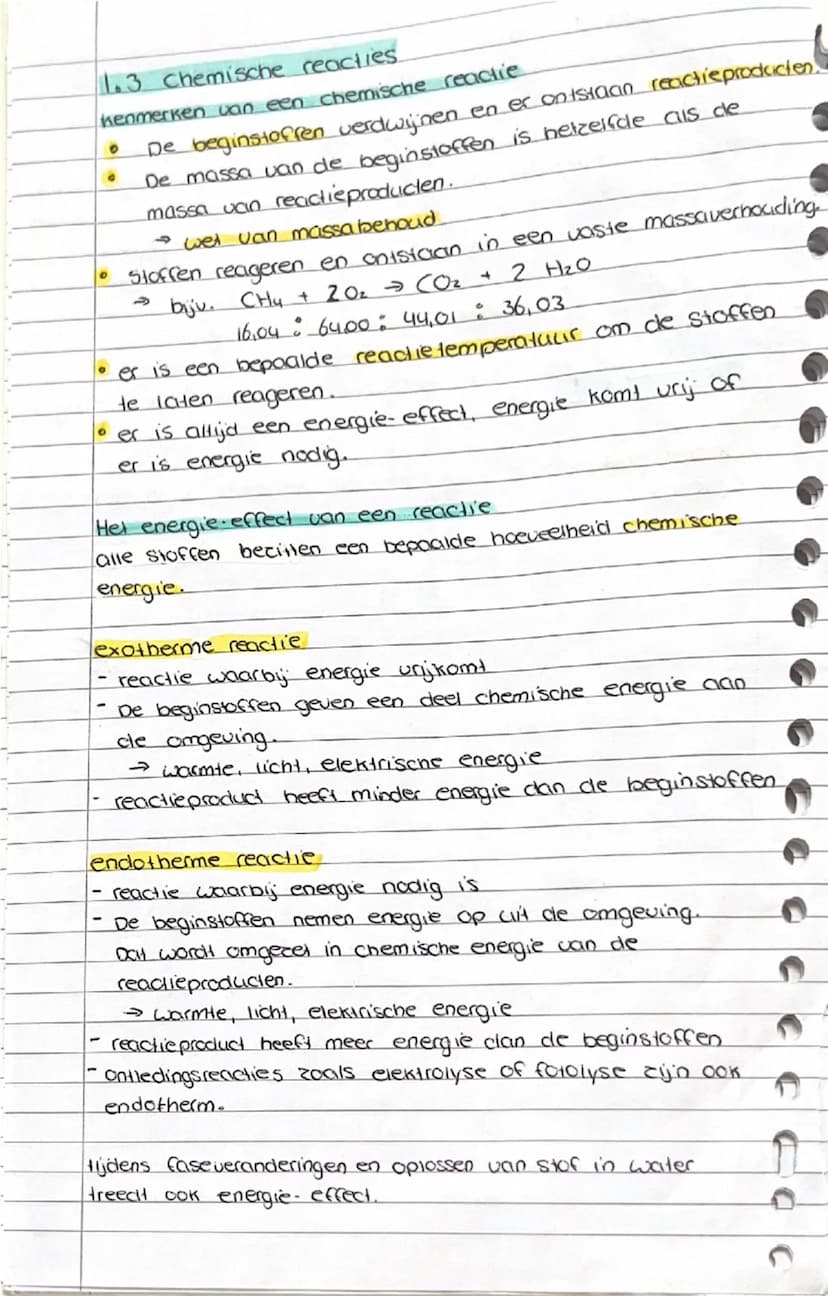 1.3 Chemische reacties
kenmerken van een chemische reactie
• De beginstoffen verdwijnen en er ontstaan reactieproducten.
• De massa van de beginstoffen is hetzelfde als de
massa van reactieproducten.
→ wet van massabehoud
• stoffen reageren en ontstaan in een vaste massaverhouding.
→ bijv. CH₄ + 2O₂ → CO₂ + 2 H₂O
16,04 : 64,00 : 44,01 : 36,03
• er is een bepaalde reactietemperatuur om de stoffen
te laten reageren.
• er is altijd een energie-effect, energie komt vrij of
er is energie nodig.
Het energie-effect van een reactie
alle stoffen bezitten een bepaalde hoeveelheid chemische
energie.
exotherme reactie
- reactie waarbij energie vrijkomt
- De beginstoffen geven een deel chemische energie aan
de omgeving.
→ warmte, licht, elektrische energie
- reactieproduct heeft minder energie dan de beginstoffen
endotherme reactie
- reactie waarbij energie nodig is
- De beginstoffen nemen energie op uit de omgeving.
Dat wordt omgezet in chemische energie van de
reactieproducten.
→ warmte, licht, elektrische energie
- reactieproduct heeft meer energie dan de beginstoffen
- ontledingsreacties zoals elektrolyse of fotolyse zijn ook
endotherm.
tijdens faseveranderingen en oplossen van stof in water
treedt ook energie-effect.